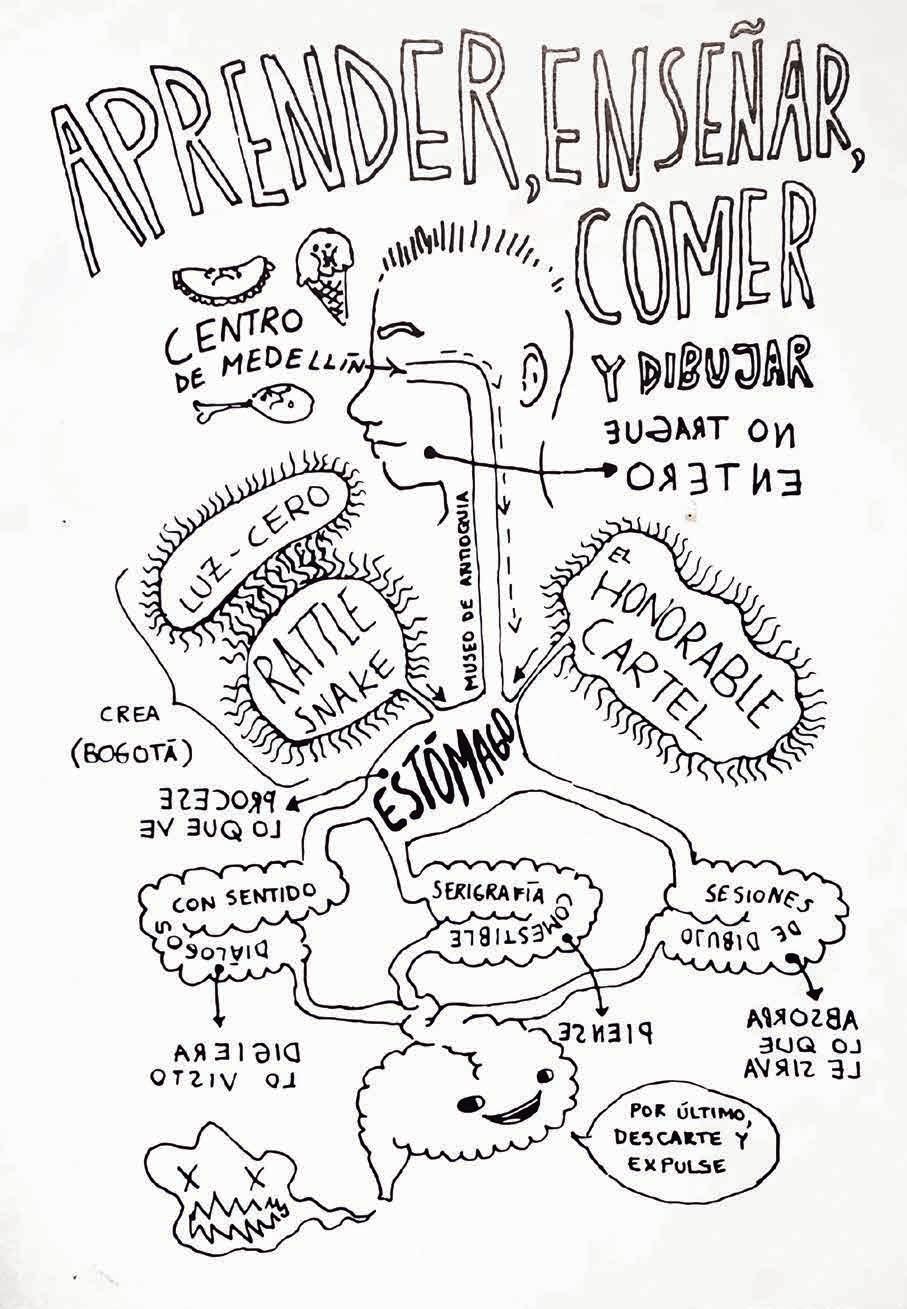 APRENDER, ENSEÑAR,
COMER
Y DIBUJAR
NO TRAGUE
ENTERO
CENTRO
DE MEDELLÍN
MUSEO DE ANTIOQUIA
LUZ-CERO
RATTLE
SNAKE
EL
HONORABLE
CARTEL
CREA
(BOGOTÁ)
ESTÓMAGO
PROCESE
LO QUE VE
CON SENTIDO
DIÁLOGOS
SERIGRAFÍA
COMESTIBLE
SESIONES
DE DIBUJO
DIGIERA
LO VISTO
PIENSE
ABSORBA
LO QUE
LE SIRVA
POR ÚLTIMO,
DESCARTE Y
EXPULSE